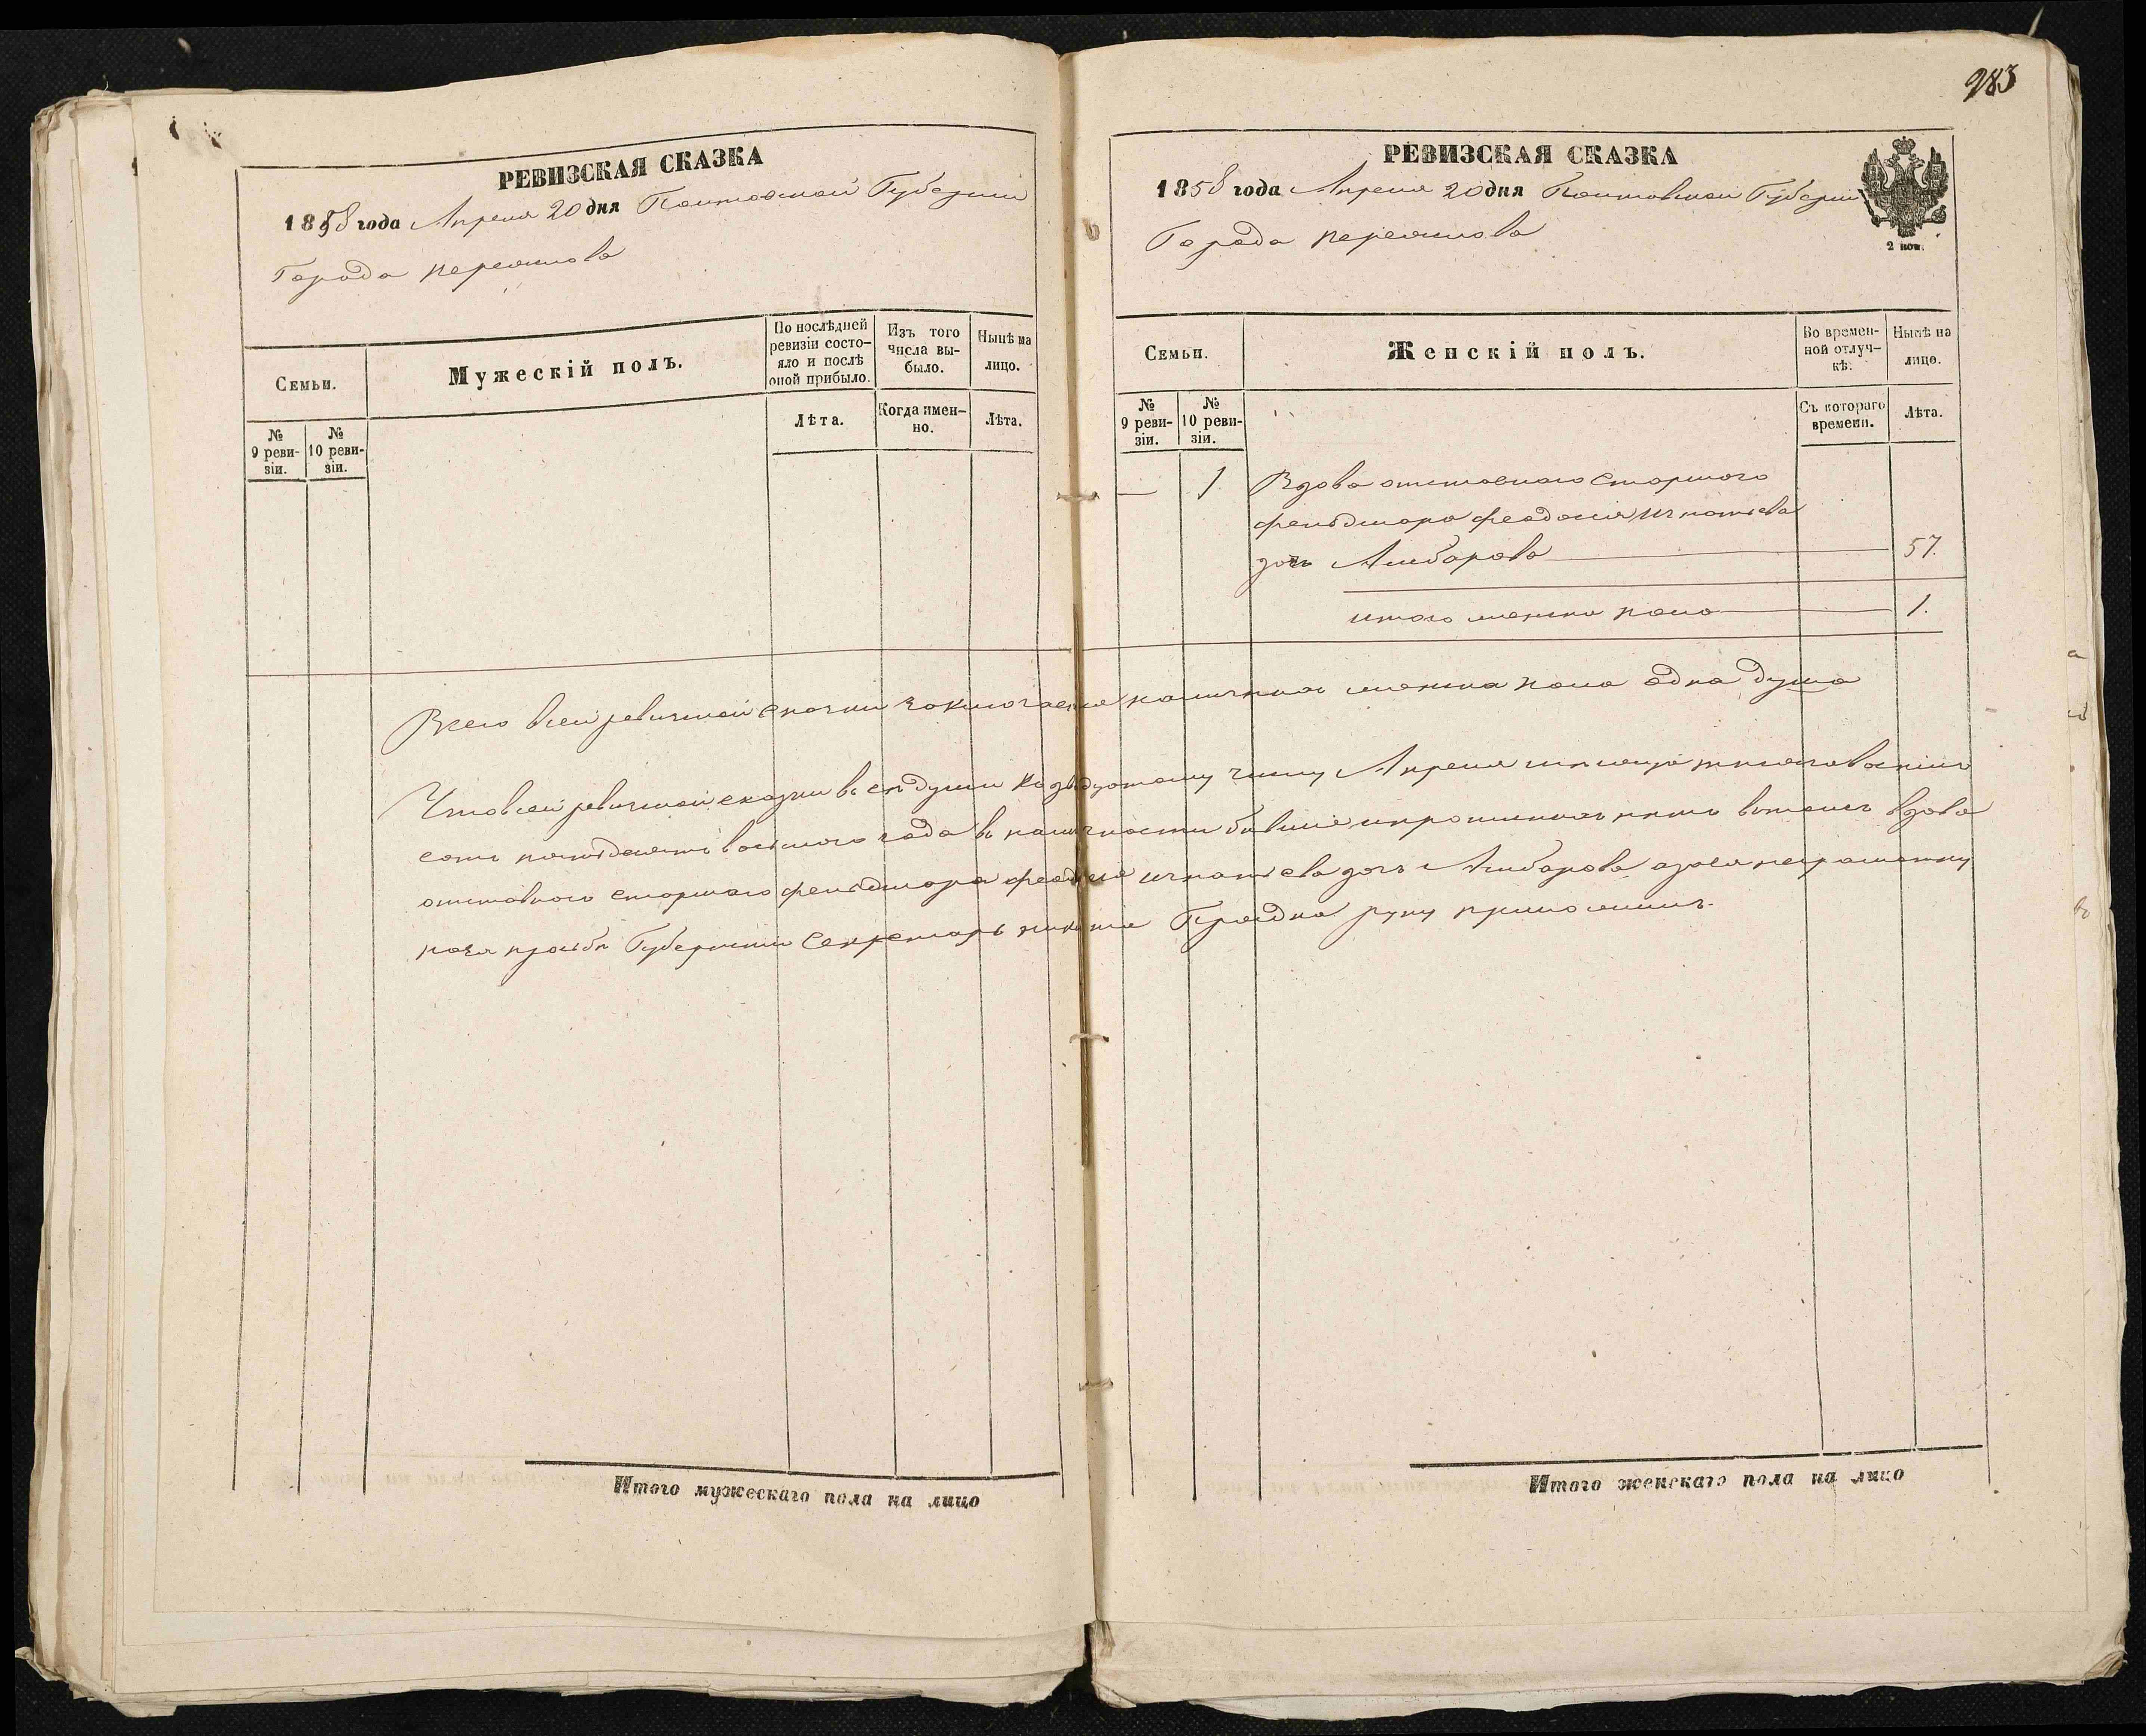 283
РЕВИЗСКАЯ СКАЗКА
1858 года Апреля 20 дня Полтавской Губернии
Города Переяслова
Семьи.
Мужескій полъ.
По послѣдней ревизіи состо-яло и послѣ оной прибыло.
Изъ того числа вы-было.
Нынѣ на лицо.
№ 9 реви-зіи.
№ 10 реви-зіи.
Лѣта.
Когда имен-но.
Лѣта.
РЕВИЗСКАЯ СКАЗКА
1858 года Апреля 20 дня Полтавской Губерніи
Города Переяслова
2 коп.
Семьи.
Женскій полъ.
Во времен-ной отлуч-кѣ.
Нынѣ на лицо.
№ 9 реви-зіи.
№ 10 реви-зіи.
Съ котораго времени.
Лѣта.
— 1 Вдова отставного старшого
фельдшера Феодосия Игнатьева
дочь Амбарова 57.
итого женска пола 1.
Всего в сей ревизской сказки заключается наличных женска пола одна душа
Что в сей ревизской сказки все души к двадцатому числу Апреля месяца тысяча восемь
сотъ пятьдесятъ восьмого года в наличности бывшие и прописных нетъ в томъ вдова
отставного старшаго фельдшера Феодосия Игнатьева дочь Амбарова а за ея неграмотну
по ея прозьбе Губернский Секретарь Праедка руку приложилъ.
Итого мужескаго пола на лицо
Итого женскаго пола на лицо